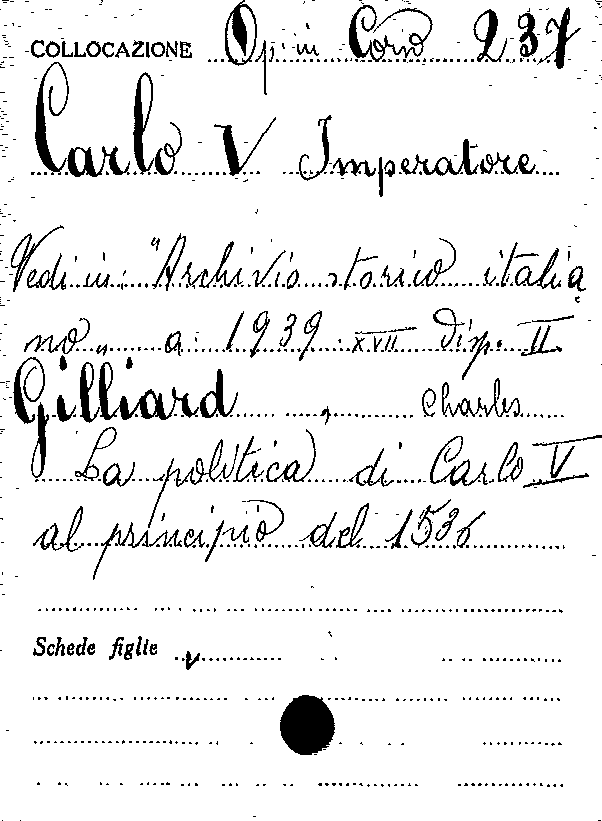 COLLOCAZIONE Op. in Corso 237
Carlo V Imperatore
Vedi in: "Archivio storico italia
no„ a. 1939 XVII Disp. II
Gilliard , Charles
La politica di Carlo V
al principio del 1536
Schede figlie v